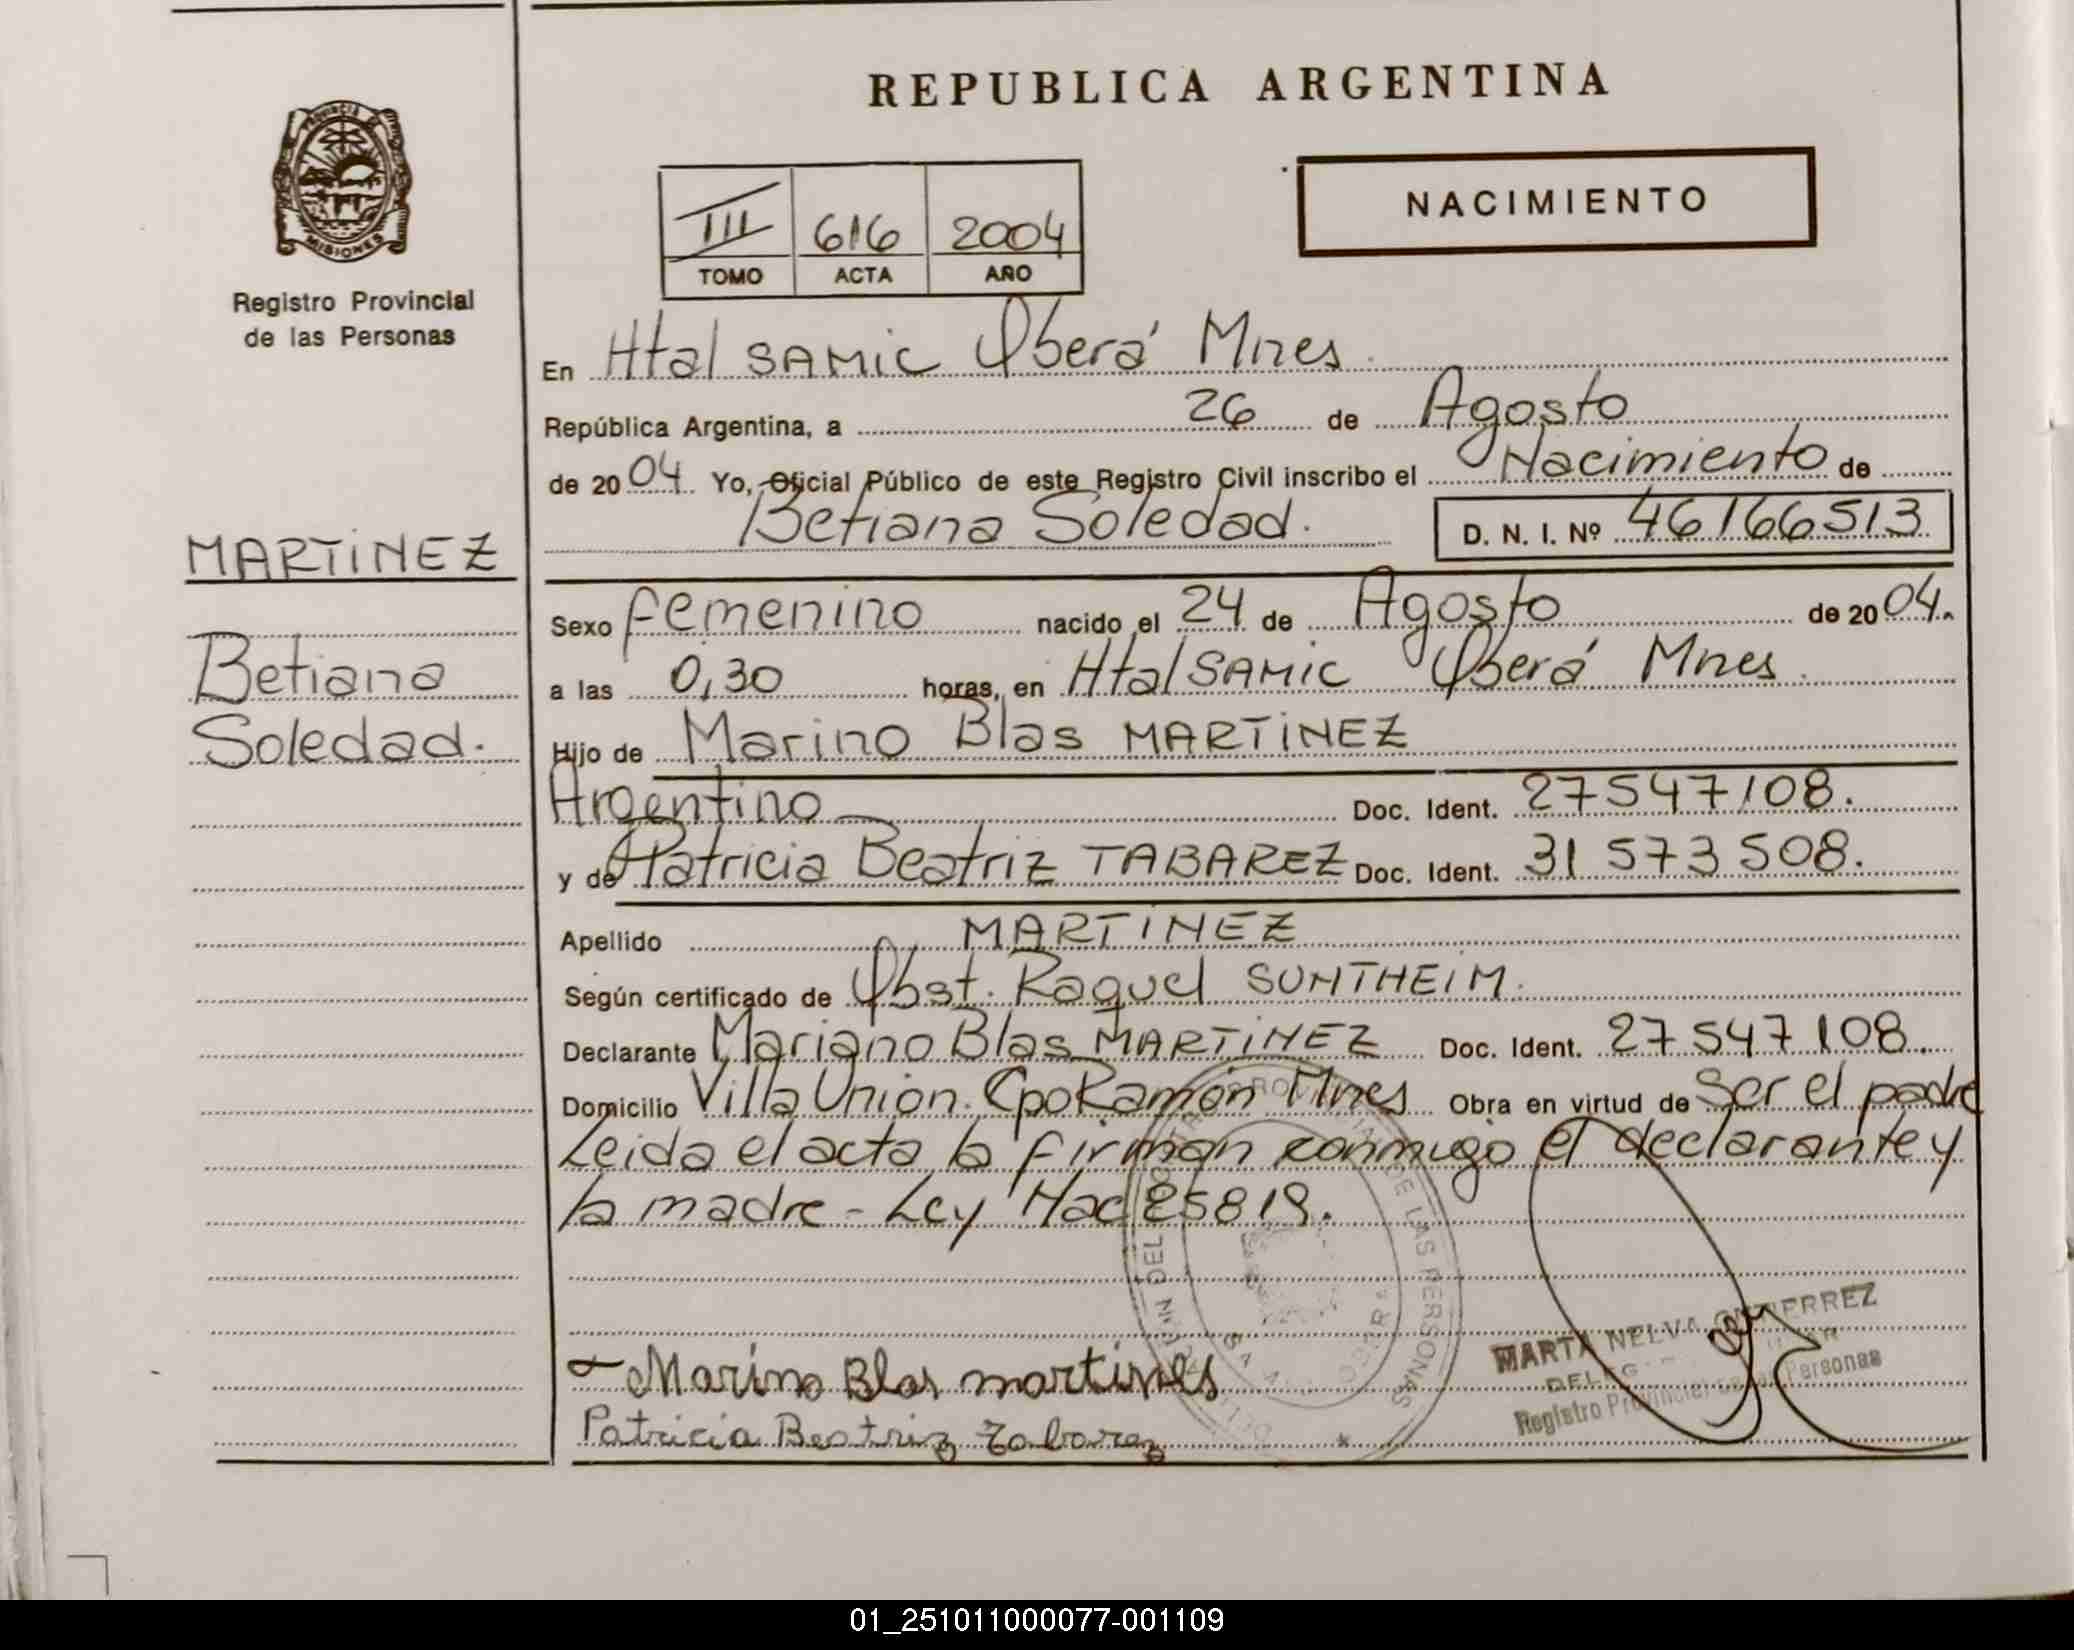 REPUBLICA ARGENTINA
PROVINCIA
MISIONES
Registro Provincial
de las Personas
NACIMIENTO
III 616 2004
TOMO ACTA AÑO
En Htal SAMIC Oberá Mnes.
República Argentina, a 26 de Agosto
de 2004. Yo, Oficial Público de este Registro Civil inscribo el Nacimiento de
Betiana Soledad. D. N. I. Nº 46166513
MARTINEZ
Betiana
Soledad.
Sexo femenino nacido el 24 de Agosto de 2004.
a las 0,30 horas, en Htal SAMIC Oberá Mnes.
Hijo de Marino Blas MARTINEZ
Argentino Doc. Ident. 27547108.
y de Patricia Beatriz TABAREZ Doc. Ident. 31573508.
Apellido MARTINEZ
Según certificado de Obst. Raquel SUNTHEIM.
Declarante Mariano Blas MARTINEZ Doc. Ident. 27547108.
Domicilio Villa Unión. Cpo Ramón Mnes Obra en virtud de Ser el padre
Leida el acta la firman conmigo el declarante y
la madre - Ley Nac 25819.
Marino Blas martines
Patricia Beatriz Tabarez
MARTA NELVA GUTIERREZ
Registro Provincial de las Personas
01_251011000077-001109